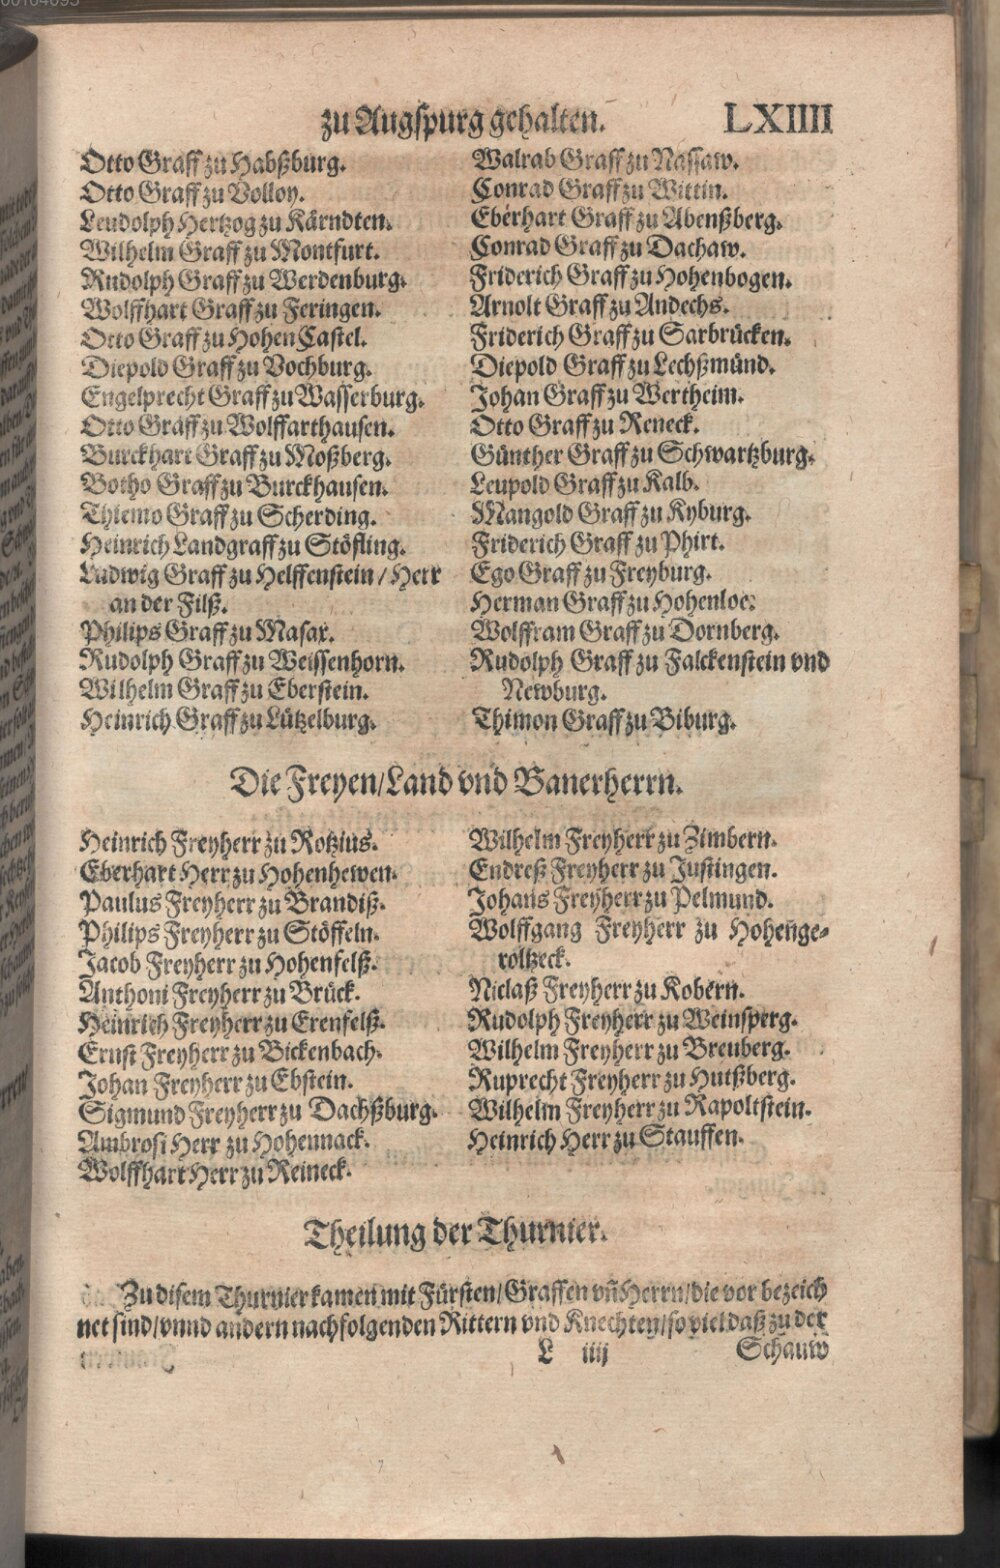 zu Augspurg gehalten. LXIIII
Otto Graff zu Habßburg.
Otto Graff zu Volloy.
Leudolph Hertzog zu Kärndten.
Wilhelm Graff zu Montfurt.
Rudolph Graff zu Werdenburg.
Wolffhart Graff zu Feringen.
Otto Graff zu Hohen Castel.
Diepold Graff zu Vochburg.
Engelprecht Graff zu Wasserburg.
Otto Graff zu Wolffarthausen.
Burckhart Graff zu Moßberg.
Botho Graff zu Burckhausen.
Thiemo Graff zu Scherding.
Heinrich Landgraff zu Stöfling.
Ludwig Graff zu Helffenstein / Herr
an der Filß.
Philips Graff zu Masax.
Rudolph Graff zu Weissenhorn.
Wilhelm Graff zu Eberstein.
Heinrich Graff zu Lützelburg.
Walrab Graff zu Nassaw.
Conrad Graff zu Wittin.
Eberhart Graff zu Abenßberg.
Conrad Graff zu Dachaw.
Friderich Graff zu Hohenbogen.
Arnolt Graff zu Andechs.
Friderich Graff zu Sarbrücken.
Diepold Graff zu Lechßmünd.
Johan Graff zu Wertheim.
Otto Graff zu Reneck.
Günther Graff zu Schwartzburg.
Leupold Graff zu Kalb.
Mangold Graff zu Kyburg.
Friderich Graff zu Phirt.
Ego Graff zu Freyburg.
Herman Graff zu Hohenloe.
Wolffram Graff zu Dornberg.
Rudolph Graff zu Falckenstein vnd
Newburg.
Thimon Graff zu Biburg.
Die Freyen/Land vnd Banerherrn.
Heinrich Freyherr zu Rotzius.
Eberhart Herr zu Hohenhewen.
Paulus Freyherr zu Brandiß.
Philips Freyherr zu Stöffeln.
Jacob Freyherr zu Hohenfelß.
Anthoni Freyherr zu Brück.
Heinrich Freyherr zu Erenfelß.
Ernst Freyherr zu Bickenbach.
Johan Freyherr zu Ebstein.
Sigmund Freyherr zu Dachßburg.
Ambrosi Herr zu Hohennack.
Wolffhart Herr zu Reineck.
Wilhelm Freyherr zu Zimbern.
Endreß Freyherr zu Justingen.
Johans Freyherr zu Pelmund.
Wolffgang Freyherr zu Hohenge-
roltzeck.
Niclaß Freyherr zu Kobern.
Rudolph Freyherr zu Weinsperg.
Wilhelm Freyherr zu Breuberg.
Ruprecht Freyherr zu Hutßberg.
Wilhelm Freyherr zu Rapoltstein.
Heinrich Herr zu Stauffen.
Theilung der Thurnier.
Zu disem Thurnier kamen mit Fürsten/Graffen vñ Herrn/die vor bezeich
net sind/vnnd andern nachfolgenden Rittern vnd Knechten/so viel daß zu der
L iiij Schauw